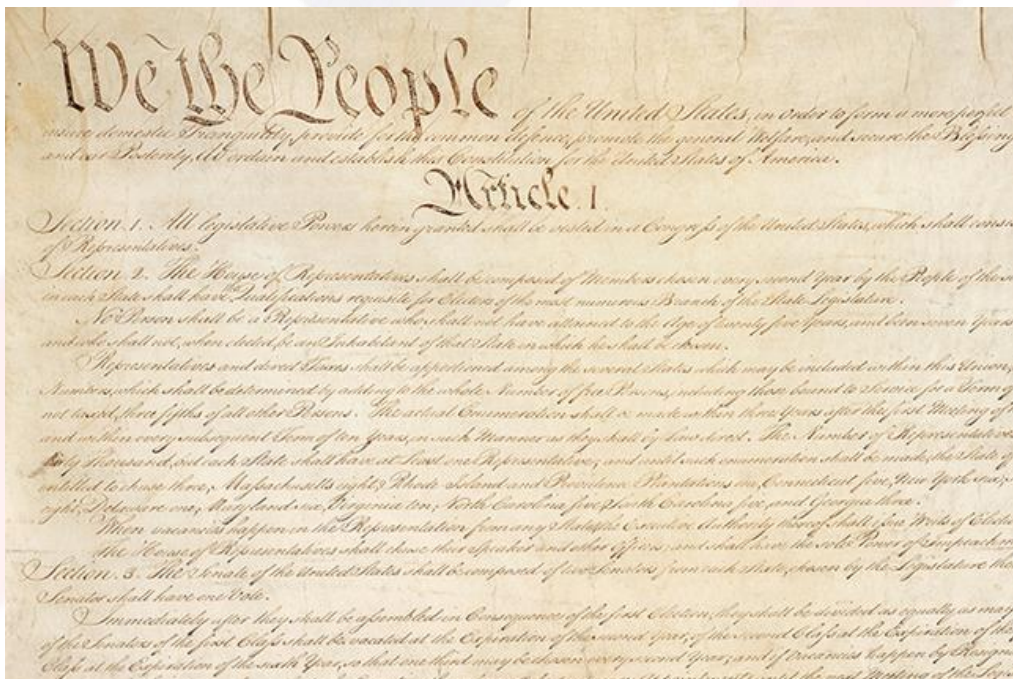 We the People of the United States, in order to form a more perfect
insure domestic Tranquility, provide for the common defence, promote the general Welfare, and secure the Blessing
and our Posterity, do ordain and establish this Constitution for the United States of America.
Article. I.
Section. 1. All legislative Powers herein granted shall be vested in a Congress of the United States, which shall consis
of Representatives.
Section. 2. The House of Representatives shall be composed of Members chosen every second Year by the People of the s
in each State shall have the Qualifications requisite for Electors of the most numerous Branch of the State Legislature.
No Person shall be a Representative who shall not have attained to the Age of twenty five Years, and been seven Years
and who shall not, when elected, be an Inhabitant of that State in which he shall be chosen.
Representatives and direct Taxes shall be apportioned among the several States which may be included within this Union,
Numbers, which shall be determined by adding to the whole Number of free Persons, including those bound to Service for a Term of
not taxed, three fifths of all other Persons. The actual Enumeration shall be made within three Years after the first Meeting of
and within every subsequent Term of ten Years, in such Manner as they shall by Law direct. The Number of Representatives
thirty Thousand, but each State shall have at Least one Representative; and until such enumeration shall be made, the State of
entitled to chuse three, Massachusetts eight, Rhode Island and Providence Plantations one, Connecticut five, New York six,
eight, Delaware one, Maryland six, Virginia ten, North Carolina five, South Carolina five, and Georgia three.
When vacancies happen in the Representation from any State, the Executive Authority thereof shall issue Writs of Electio
The House of Representatives shall chuse their Speaker and other Officers; and shall have the sole Power of Impeachm
Section. 3. The Senate of the United States shall be composed of two Senators from each State, chosen by the Legislature the
Senator shall have one Vote.
Immediately after they shall be assembled in Consequence of the first Election, they shall be divided as equally as may
of the Senators of the first Class shall be vacated at the Expiration of the second Year, of the second Class at the Expiration of the
Class at the Expiration of the sixth Year, so that one third may be chosen every second Year; and if Vacancies happen by Resign
until the next Meeting of the Legis